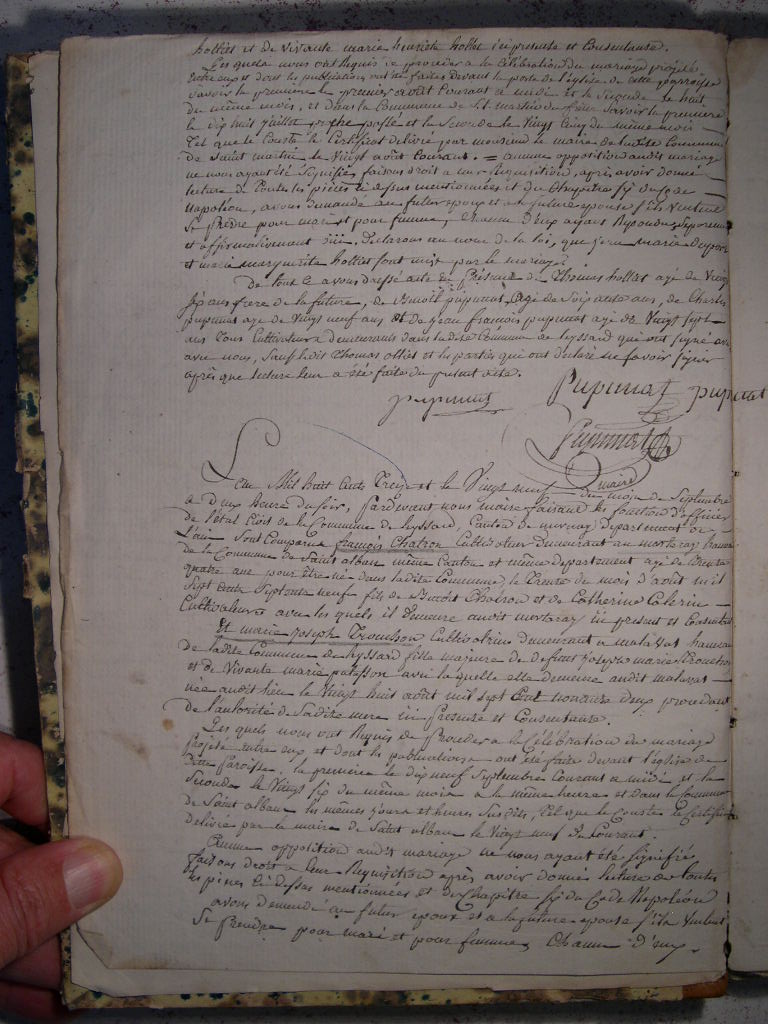 holliet et de vivante marie henriete hollet ici presente et Consentante.
Les quels nous ont Requis de proceder a la Célébration du mariage projeté
entre eux et dont les publications ont été faites devant la porte de l'église de cette parroisse
savoir la premiere le premier août Courant a midi et la seconde le huit
du même mois, et dans la Commune de St. martin du savoir la premiere
le dix huit juillet proche passé et la seconde le Vingt Cinq du même mois
Tel que le Conste le Certificat delivré par monsieur le maire de ladite Commune
de Saint martin le Vingt août Courant. = aucune opposition audit mariage
ne nous ayant été Signifiée faisons droit a leur Requisition, après avoir donné
lecture de toutes les pièces ci dessus mentionnées et du Chapitre six du Code
Napoléon, avons demandé au futur epoux et a la future epouse s'ils veulent
se prendre pour mari et pour femme, chacun d'eux ayant Repondu Separement
et affirmativement oui. Declarons au nom de la loi, que marie
et marie marguerite holliet sont unis par le mariage.
De tout ce avons dressé acte en Présence de Thomas holliet agé de Vingt
sept ans frere de la future, de Benoit pupunat, agé de Soixante ans, de Charles
pupunat age de Vingt neuf ans et de jean françois pupunat agé de Vingt sept
ans tous Cultivateurs demeurants dans ladite Commune de leyssard qui ont signé
avec nous, Sauf ledit Thomas olliet et les parties qui ont declaré ne savoir signer
après que lecture leur a été faite du présent acte.
pupunat Pupunat pupunat
Pupunat
maire
L'an Mil huit Cents Treize et le Vingt neuf du mois de Septembre
a deux heure du soir, Pardevant nous maire faisant les fonction d'officier
de l'état Civil de la Commune de leyssard, Canton de Department de
L'ain sont Comparus françois Chatron Cultivateur demeurant au mortaray hameau
de la Commune de Saint alban même Canton et même departement agé de trente
quatre ans pour être né dans ladite Commune, le trente du mois d'août mil
sept cents Septante neuf fils de Benoit Chatron et de Catherine
Cultivateurs avec les quels il demeure audit mortaray ici present et Consentant
Et marie Joseph Trouchon Cultivatrice demeurant a malaval hameau
de ladite Commune de leyssard fille majeure de defunt Joseph marie
et de Vivante marie avec la quelle elle demeure audit malaval
née audit lieu le Vingt huit août mil sept Cent nonante deux procedant
de l'autorité de sadite mere ici Presente et Consentante.
Les quels nous ont Requis de Proceder a la Célébration du mariage
Projeté entre eux et dont les publications ont été faite devant l'église de
cette Paroisse, la premiere le dix neuf Septembre Courant a midi et la
seconde le Vingt six du même mois a la même heure et dans la Commune
de Saint alban les mêmes jours et heures Susdits, tel que le Conste le Certificat
delivré par le maire de Saint alban le Vingt neuf du Courant.
Aucune opposition audit mariage ne nous ayant été signifiée
faisons droit a leur Requisition après avoir donné lecture de toutes
les pièces Ci dessus mentionnées et du Chapitre six du Code Napoléon
avons demandé au futur epoux et a la future epouse s'ils veulent
se prendre pour mari et pour femme, Chacun d'eux